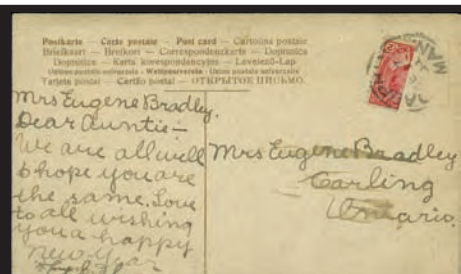 Postkarte — Carte postale — Post card — Cartolina postale
Briefkaart — Brefkort — Correspondenzkarte — Dopisnice
Dopisnica — Karta korespondencyjna — Levelező-Lap
Union postale universelle — Weltpostverein — Union postale universelle
Tarjeta postal — Cartão postal — ОТКРЫТОЕ ПИСЬМО.
MAN
Mrs Eugene Bradley.
Dear Auntie—
We are all well
& hope you are
the same. Love
to all wishing
you a happy
New Year
Mrs Eugene Bradley
Carling
Ontario.